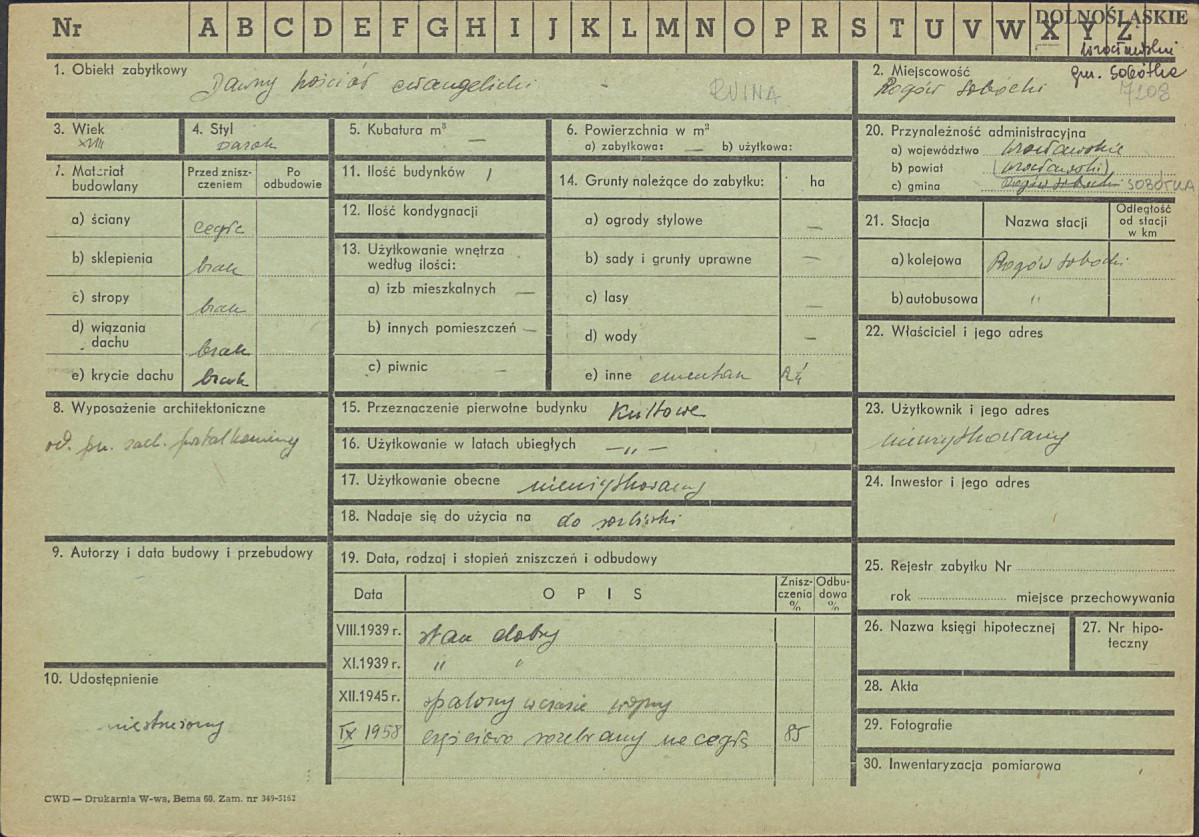 Nr A B C D E F G H I J K L M N O P R S T U V W X Y Z
DOLNOŚLĄSKIE
wrocławski
gm. Sobótka
7208
1. Obiekt zabytkowy Dawny kościół ewangelicki RUINA
2. Miejscowość
Rogów Sobócki
3. Wiek
XVIII
4. Styl
barok
5. Kubatura m³ —
6. Powierzchnia w m²
a) zabytkowa: — b) użytkowa:
20. Przynależność administracyjna
a) województwo wrocławskie
b) powiat (wrocławski)
c) gmina Rogów Sobócki SOBÓTKA
7. Materiał budowlany
Przed zniszczeniem
Po odbudowie
a) ściany cegła
b) sklepienia brak
c) stropy brak
d) wiązania dachu brak
e) krycie dachu brak
11. Ilość budynków 1
12. Ilość kondygnacji
13. Użytkowanie wnętrza
według ilości:
a) izb mieszkalnych —
b) innych pomieszczeń —
c) piwnic —
14. Grunty należące do zabytku: ha
a) ogrody stylowe —
b) sady i grunty uprawne —
c) lasy —
d) wody —
e) inne cmentarz
21. Stacja Nazwa stacji
Odległość
od stacji
w km
a) kolejowa Rogów Sobócki
b) autobusowa "
22. Właściciel i jego adres
8. Wyposażenie architektoniczne
od. pn. zach. portal kamienny
15. Przeznaczenie pierwotne budynku Kultowe
16. Użytkowanie w latach ubiegłych — " —
17. Użytkowanie obecne nieużytkowany
18. Nadaje się do użycia na do rozbiórki
23. Użytkownik i jego adres
nieużytkowany
24. Inwestor i jego adres
9. Autorzy i data budowy i przebudowy
19. Data, rodzaj i stopień zniszczeń i odbudowy
Data OPIS
Zniszczenia %
Odbudowa %
VIII.1939 r. stan dobry
XI.1939 r. " "
XII.1945 r. spalony w czasie wojny
IX 1958 częściowo rozebrany na cegłę 85
10. Udostępnienie
25. Rejestr zabytku Nr
rok miejsce przechowywania
26. Nazwa księgi hipotecznej
27. Nr hipo-
teczny
28. Akta
29. Fotografie
30. Inwentaryzacja pomiarowa
CWD — Drukarnia W-wa, Bema 60. Zam. nr 349-5162